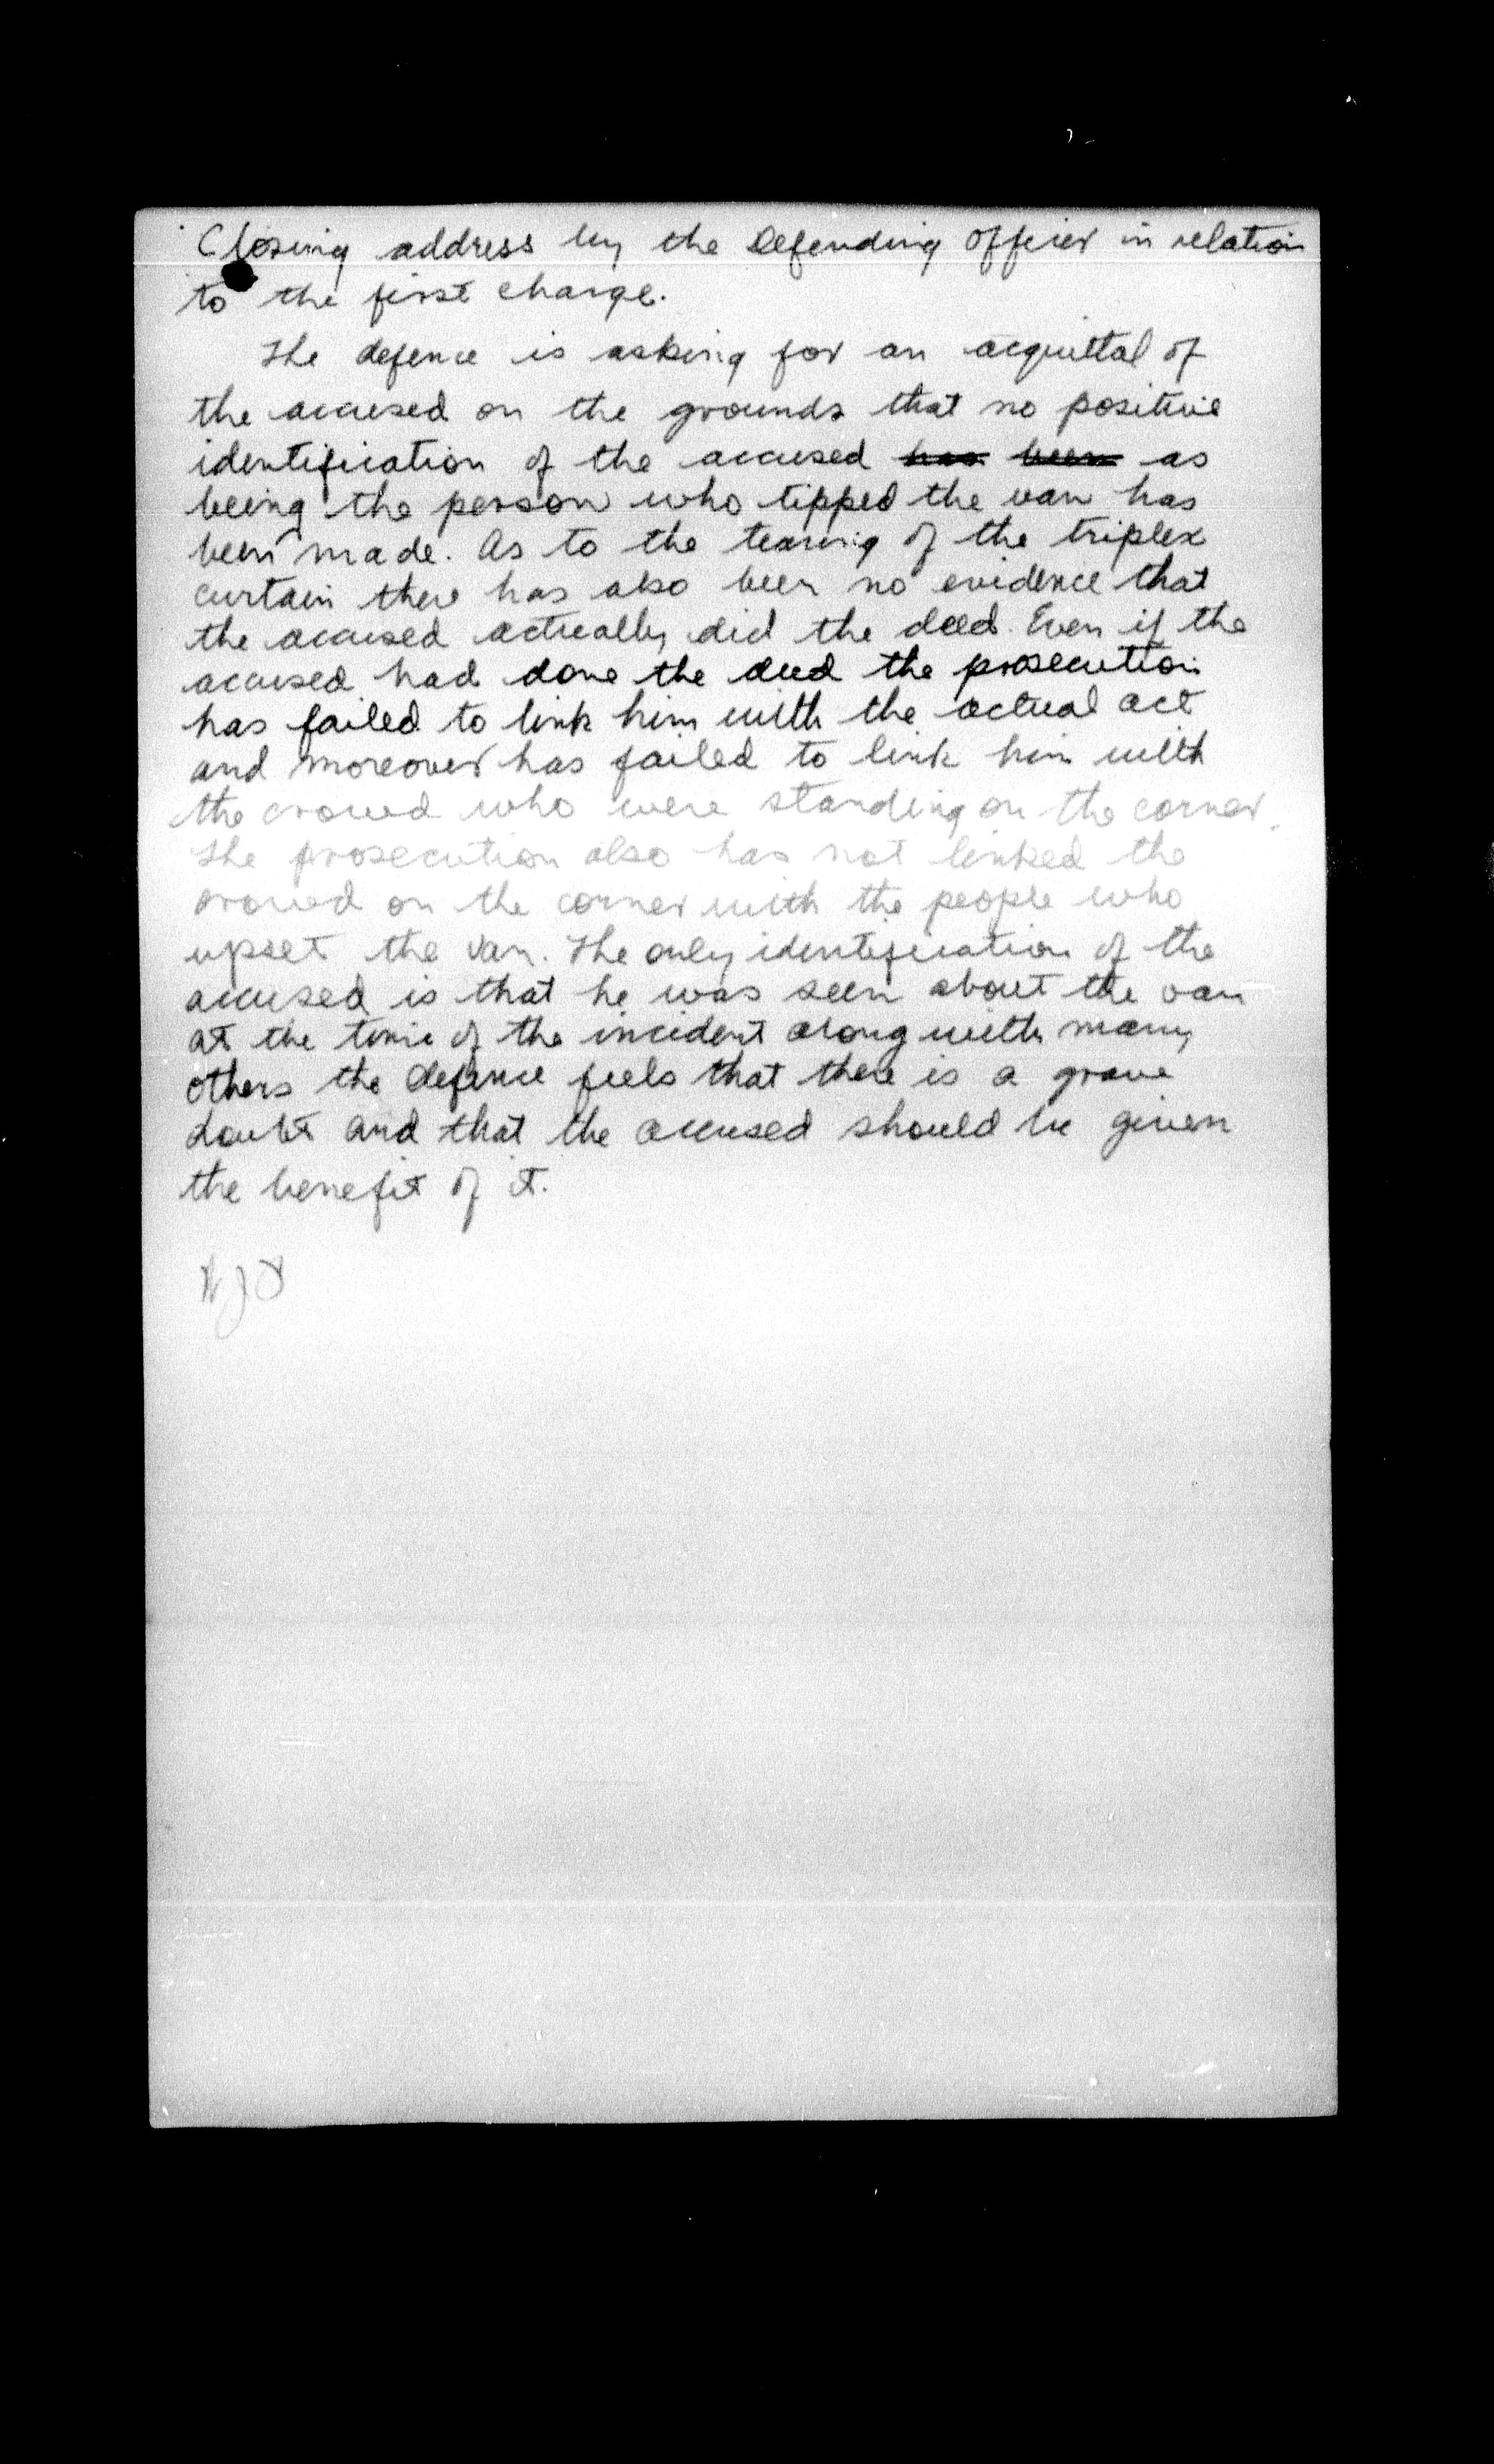 Closing address by the Defending Officer in relation
to the first charge.
The defence is asking for an acquittal of
the accused on the grounds that no positive
identification of the accused ~~has been~~ as
being the person who tipped the van has
been made. As to the tearing of the triplex
curtain there has also been no evidence that
the accused actually did the deed. Even if the
accused had done the deed the prosecution
has failed to link him with the actual act
and moreover has failed to link him with
the crowd who were standing on the corner.
The prosecution also has not linked the
crowd on the corner with the people who
upset the van. The only identification of the
accused is that he was seen about the van
at the time of the incident along with many
others the defence feels that there is a grave
doubt and that the accused should be given
the benefit of it.